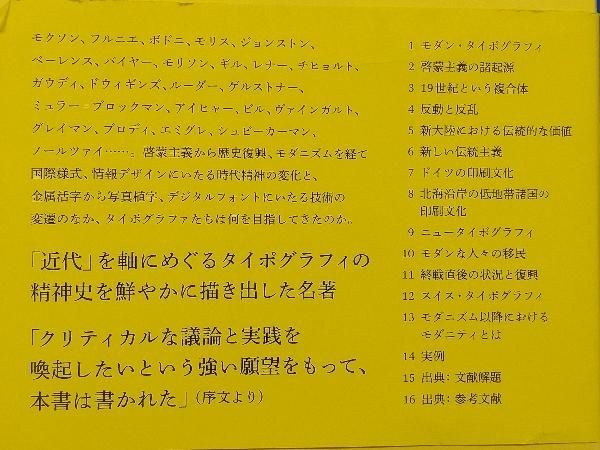 モクソン、フルニエ、ボドニ、モリス、ジョンストン、
ベーレンス、バイヤー、モリソン、ギル、レナー、チヒョルト、
ガウディ、ドウィギンズ、ルーダー、ゲルストナー、
ミュラー=ブロックマン、アイヒャー、ビル、ヴァインガルト、
グレイマン、ブロディ、エミグレ、シュピーカーマン、
ノールツァイ……。啓蒙主義から歴史復興、モダニズムを経て
国際様式、情報デザインにいたる時代精神の変化と、
金属活字から写真植字、デジタルフォントにいたる技術の
変遷のなか、タイポグラファたちは何を目指してきたのか。
「近代」を軸にめぐるタイポグラフィの
精神史を鮮やかに描き出した名著
「クリティカルな議論と実践を
喚起したいという強い願望をもって、
本書は書かれた」（序文より）
1 モダン・タイポグラフィ
2 啓蒙主義の諸起源
3 19世紀という複合体
4 反動と反乱
5 新大陸における伝統的な価値
6 新しい伝統主義
7 ドイツの印刷文化
8 北海沿岸の低地帯諸国の
印刷文化
9 ニュータイポグラフィ
10 モダンな人々の移民
11 終戦直後の状況と復興
12 スイス・タイポグラフィ
13 モダニズム以降における
モダニティとは
14 実例
15 出典：文献解題
16 出典：参考文献